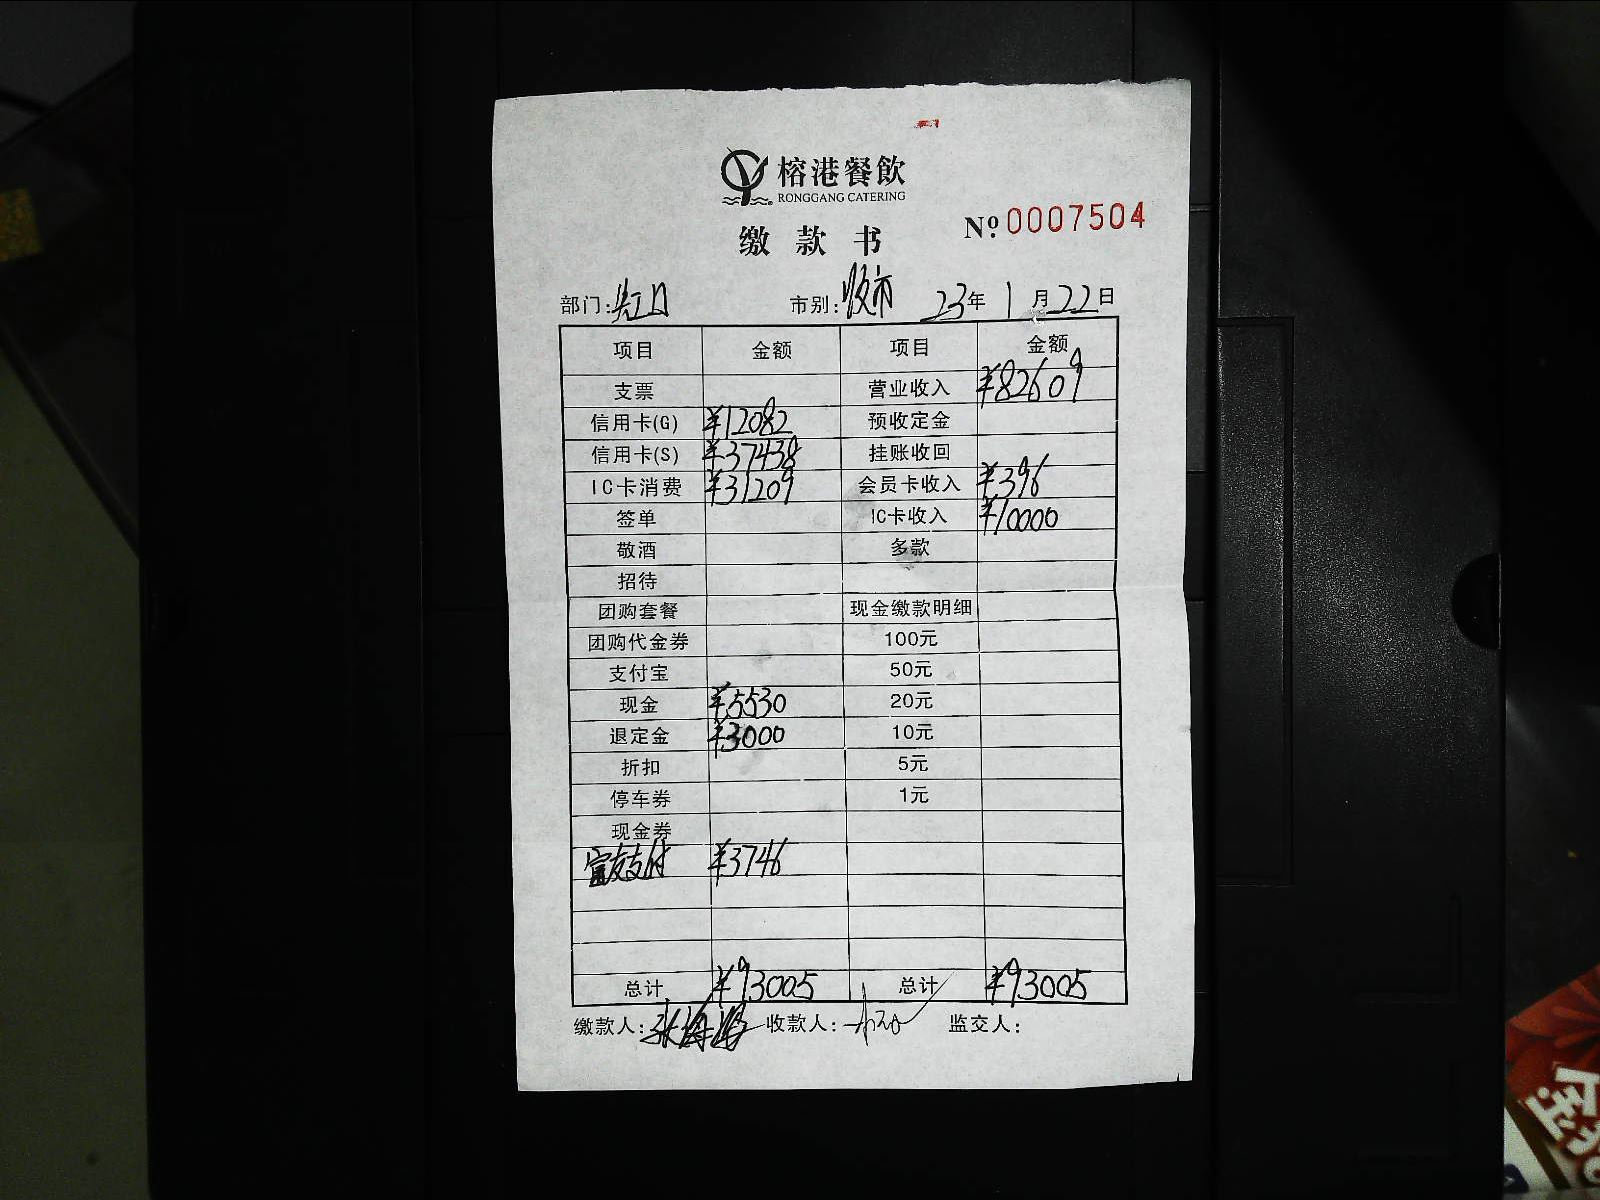 榕港餐飲
RONGGANG CATERING
缴款书 Nº 0007504
部门:虹口 市别:收市 23年1月22日
项目 金额 项目 金额
支票 营业收入 ¥82609
信用卡(G) ¥12082 预收定金
信用卡(S) ¥37438 挂账收回
IC卡消费 ¥31209 会员卡收入 ¥396
签单 IC卡收入 ¥10000
敬酒 多款
招待
团购套餐 现金缴款明细
团购代金券 100元
支付宝 50元
现金 ¥5530 20元
退定金 ¥3000 10元
折扣 5元
停车券 1元
现金券
富友支付 ¥3746
总计 ¥93005 总计 ¥93005
缴款人: 收款人: 监交人: